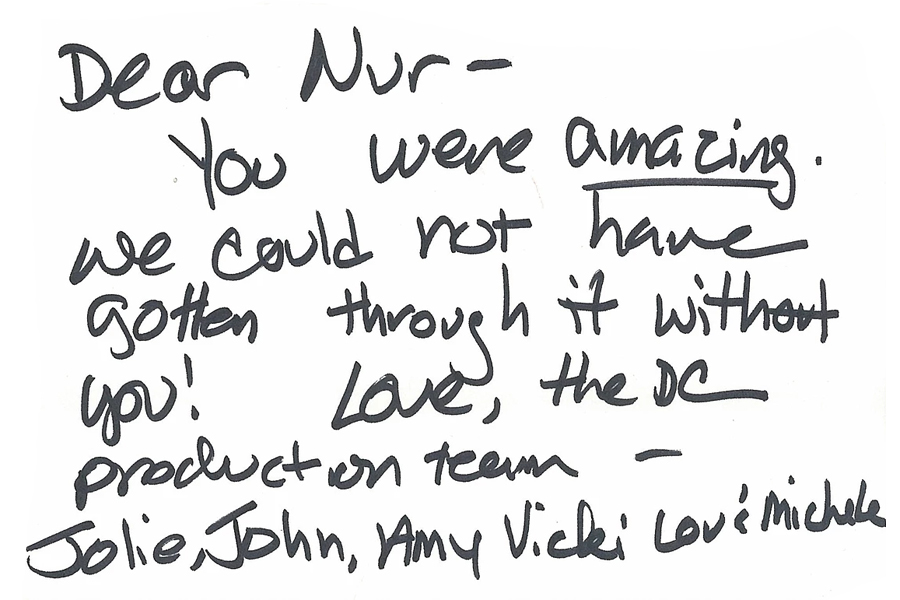 Dear Nur -
You were amazing.
we could not have
gotten through it without
you! Love, the DC
production team -
Jolie, John, Amy Vicki Lou & Michele